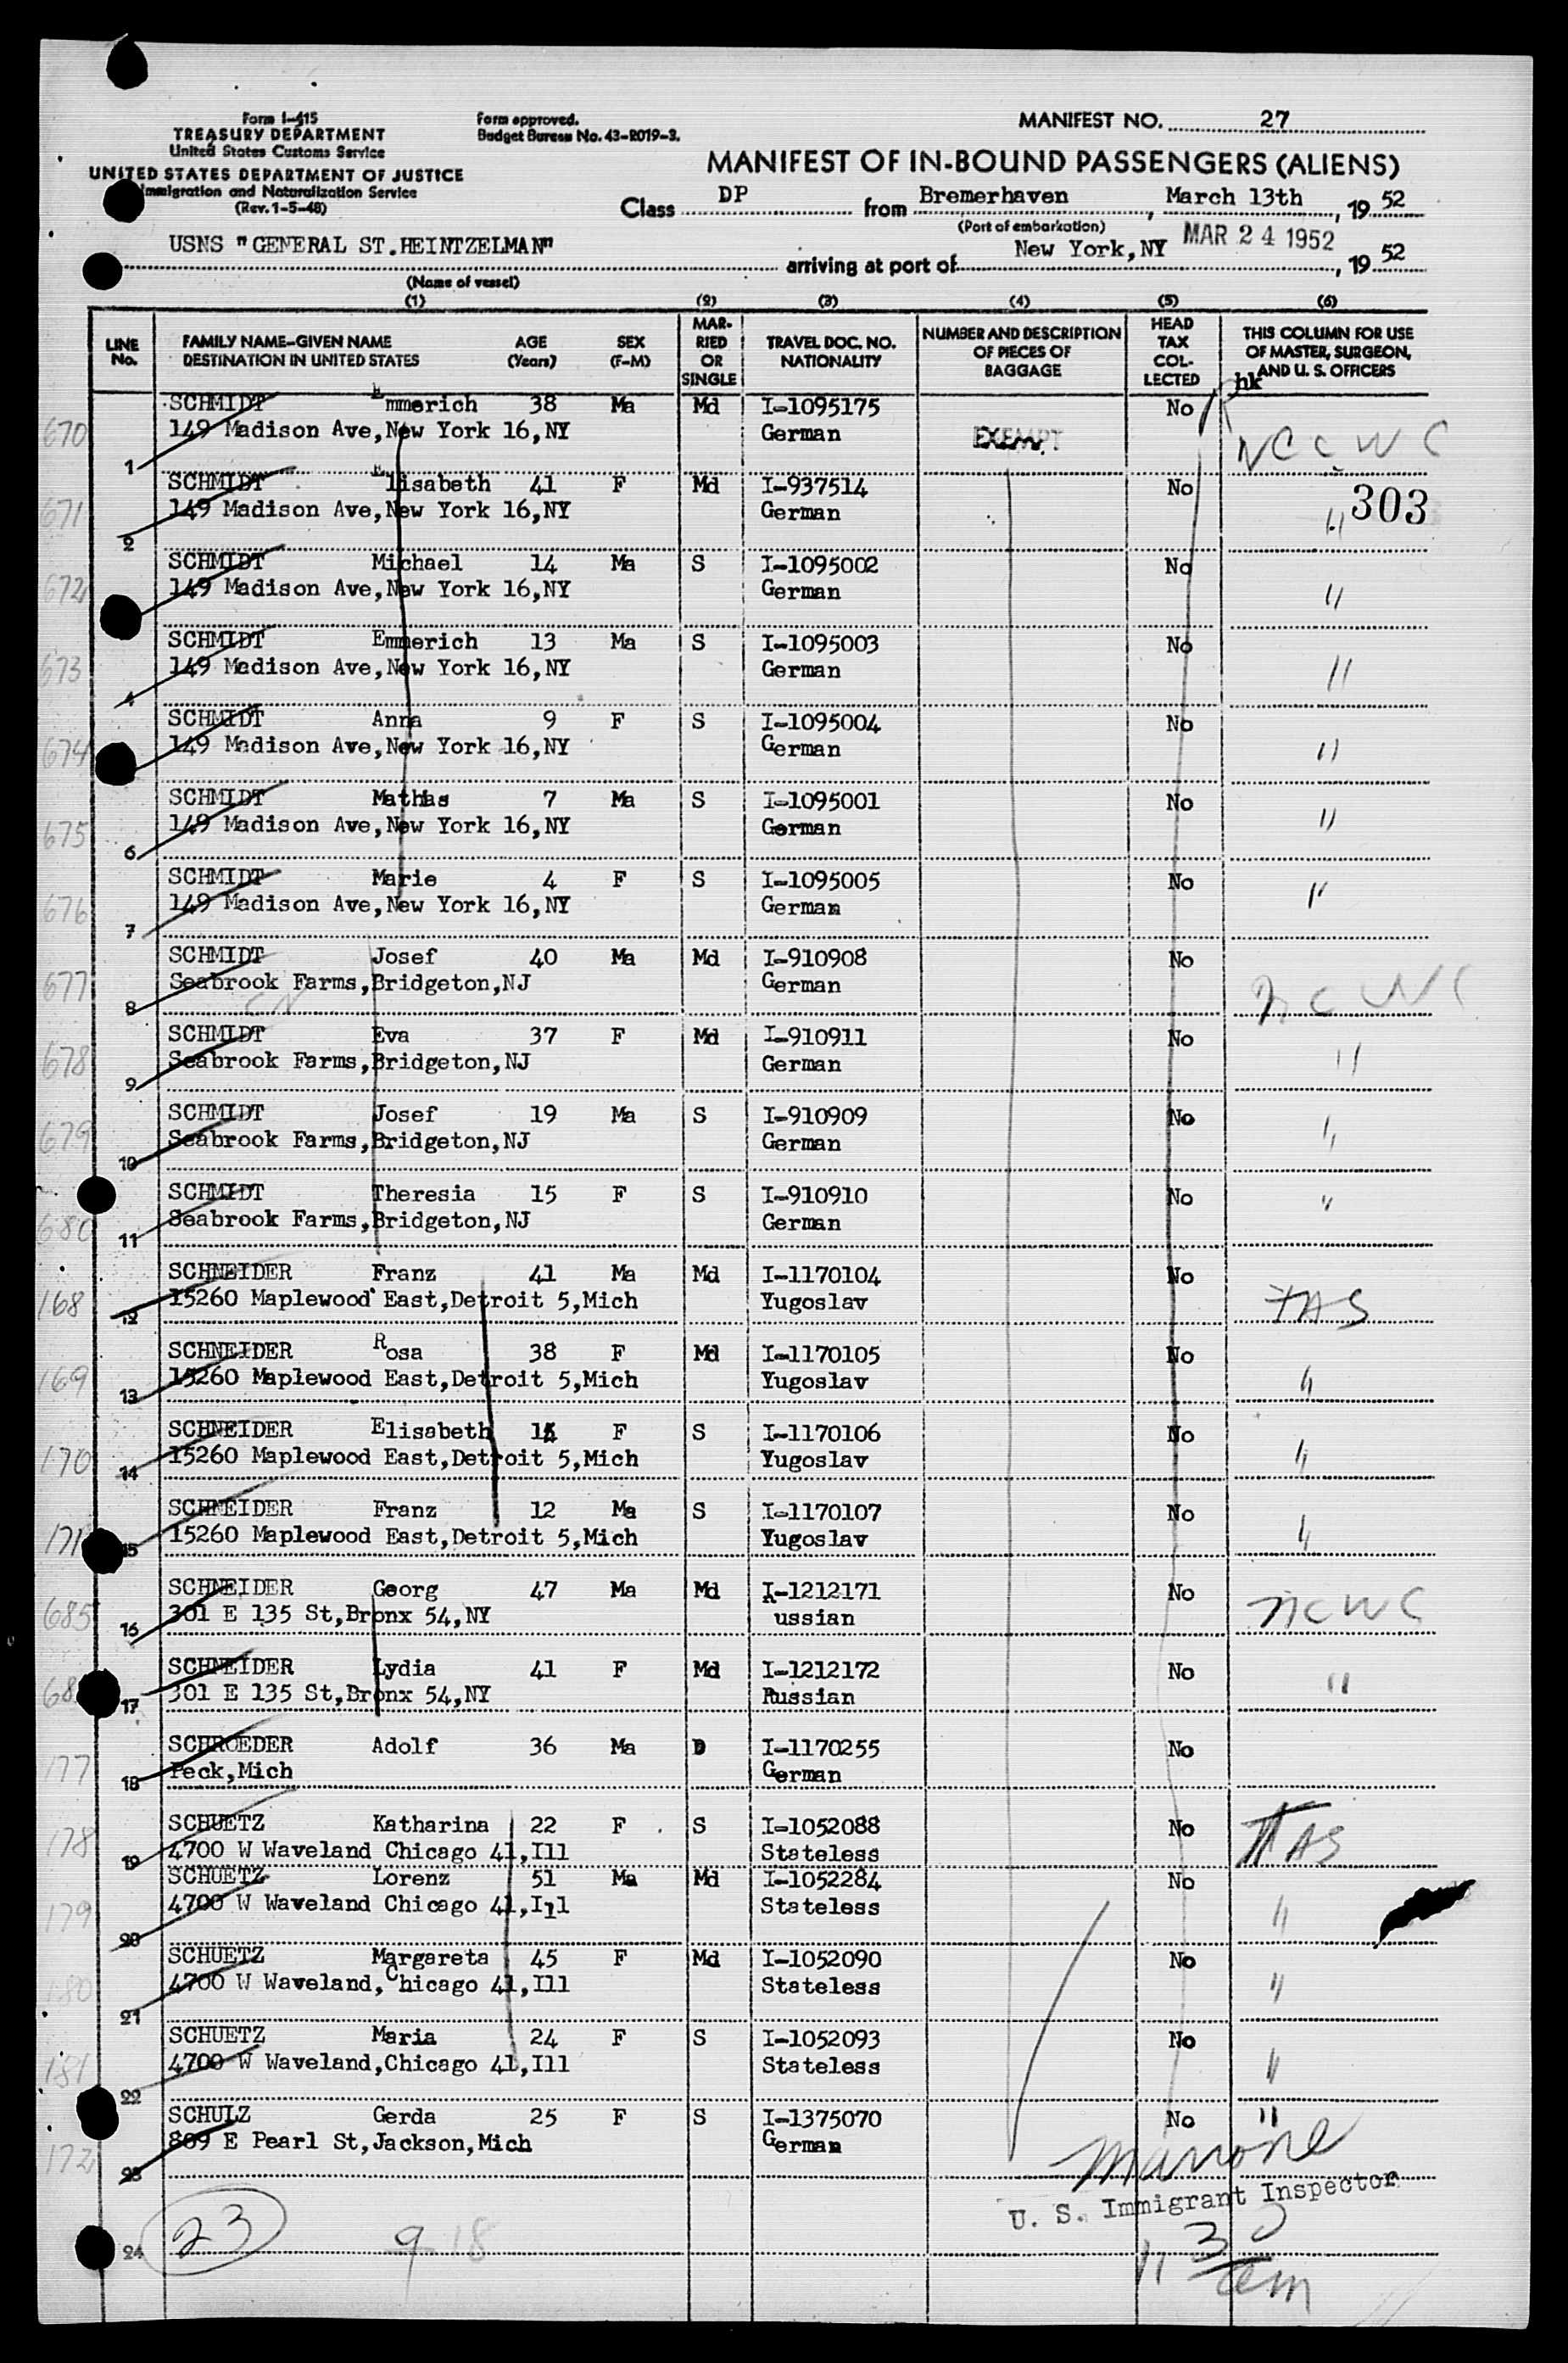 Form I-415
TREASURY DEPARTMENT
United States Customs Service
UNITED STATES DEPARTMENT OF JUSTICE
Immigration and Naturalization Service
(Rev. 1-5-48)
Form approved.
Budget Bureau No. 43-R019-3.
MANIFEST NO. 27
MANIFEST OF IN-BOUND PASSENGERS (ALIENS)
Class DP from Bremerhaven, March 13th, 19 52
(Port of embarkation)
USNS "GENERAL ST.HEINTZELMAN" arriving at port of New York,NY MAR 24 1952, 19 52
(Name of vessel)
(1) (2) (3) (4) (5) (6)
LINE No. FAMILY NAME-GIVEN NAME DESTINATION IN UNITED STATES AGE (Years) SEX (F-M) MAR-RIED OR SINGLE TRAVEL DOC. NO. NATIONALITY NUMBER AND DESCRIPTION OF PIECES OF BAGGAGE HEAD TAX COL-LECTED THIS COLUMN FOR USE OF MASTER, SURGEON, AND U. S. OFFICERS
hk
670 SCHMIDT Emmerich 38 Ma Md I-1095175 No
1 149 Madison Ave,New York 16,NY German EXEMPT NCCWC
671 SCHMIDT Elisabeth 41 F Md I-937514 No
2 149 Madison Ave,New York 16,NY German " 303
672 SCHMIDT Michael 14 Ma S I-1095002 No
149 Madison Ave,New York 16,NY German "
673 SCHMIDT Emmerich 13 Ma S I-1095003 No
4 149 Madison Ave,New York 16,NY German "
674 SCHMIDT Anna 9 F S I-1095004 No
149 Madison Ave,New York 16,NY German "
675 SCHMIDT Mathias 7 Ma S I-1095001 No
6 149 Madison Ave,New York 16,NY German "
676 SCHMIDT Marie 4 F S I-1095005 No
7 149 Madison Ave,New York 16,NY German "
677 SCHMIDT Josef 40 Ma Md I-910908 No
8 Seabrook Farms,Bridgeton,NJ German NCWC
678 SCHMIDT Eva 37 F Md I-910911 No
9 Seabrook Farms,Bridgeton,NJ German "
679 SCHMIDT Josef 19 Ma S I-910909 No
10 Seabrook Farms,Bridgeton,NJ German "
680 SCHMIDT Theresia 15 F S I-910910 No
11 Seabrook Farms,Bridgeton,NJ German "
168 SCHNEIDER Franz 41 Ma Md I-1170104 No
12 15260 Maplewood East,Detroit 5,Mich Yugoslav TAS
169 SCHNEIDER Rosa 38 F Md I-1170105 No
13 15260 Maplewood East,Detroit 5,Mich Yugoslav "
170 SCHNEIDER Elisabeth F S I-1170106 No
14 15260 Maplewood East,Detroit 5,Mich Yugoslav "
171 SCHNEIDER Franz 12 Ma S I-1170107 No
15 15260 Maplewood East,Detroit 5,Mich Yugoslav "
685 SCHNEIDER Georg 47 Ma Md I-1212171 No
16 301 E 135 St,Bronx 54,NY Russian NCWC
SCHNEIDER Lydia 41 F Md I-1212172 No
17 301 E 135 St,Bronx 54,NY Russian "
177 SCHROEDER Adolf 36 Ma D I-1170255 No
18 Peck,Mich German
178 SCHUETZ Katharina 22 F S I-1052088 No
19 4700 W Waveland Chicago 41,Ill Stateless TAS
179 SCHUETZ Lorenz 51 Ma Md I-1052284 No
20 4700 W Waveland Chicago 41,Ill Stateless "
180 SCHUETZ Margareta 45 F Md I-1052090 No
21 4700 W Waveland,Chicago 41,Ill Stateless "
181 SCHUETZ Maria 24 F S I-1052093 No
22 4700 W Waveland,Chicago 41,Ill Stateless "
172 SCHULZ Gerda 25 F S I-1375070 No "
23 809 E Pearl St,Jackson,Mich German
U. S. Immigrant Inspector
23
24 9 18
11 30 am